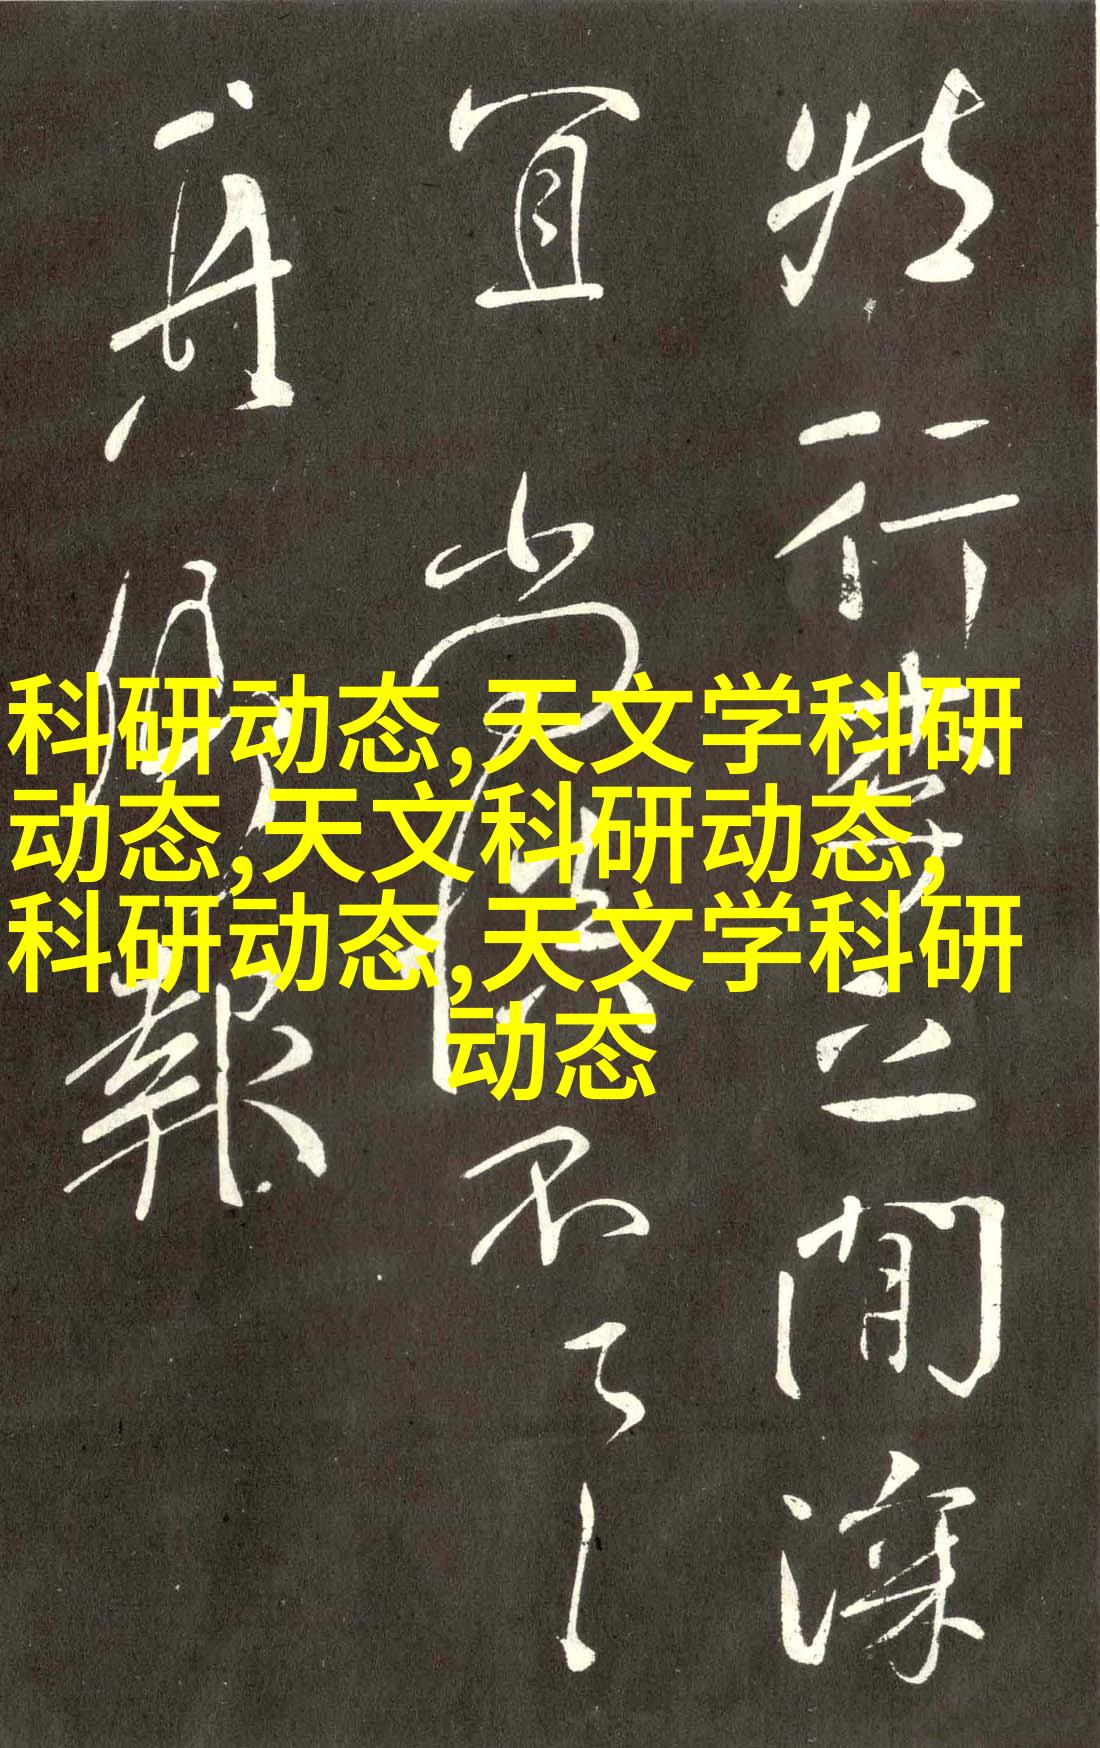 科研动态,天文学科研
动态,天文科研动态,
科研动态,天文学科研
动态
行草之間深
宜尚慎不
報